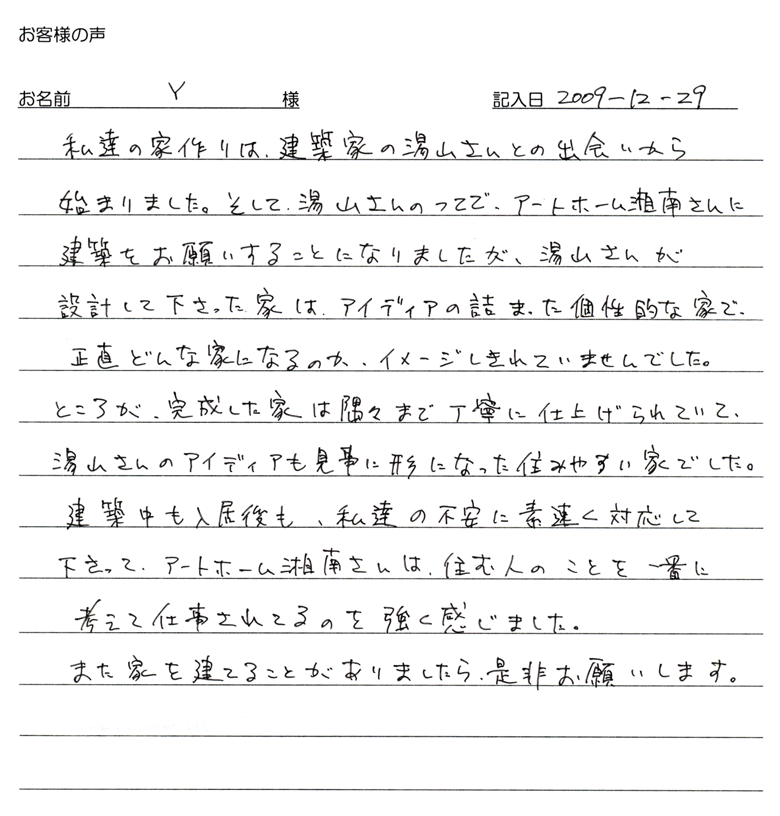 お客様の声
お名前 Y 様 記入日 2009-12-29
私達の家作りは、建築家の湯山さんとの出会いから
始まりました。そして、湯山さんのつてで、アートホーム湘南さんに
建築をお願いすることになりましたが、湯山さんが
設計して下さった家は、アイディアの詰まった個性的な家で、
正直どんな家になるのか、イメージしきれていませんでした。
ところが、完成した家は隅々まで丁寧に仕上げられていて、
湯山さんのアイディアも見事に形になった住みやすい家でした。
建築中も入居後も、私達の不安に素速く対応して
下さって、アートホーム湘南さんは、住む人のことを一番に
考えて仕事されてるのを強く感じました。
また家を建てることがありましたら、是非お願いします。